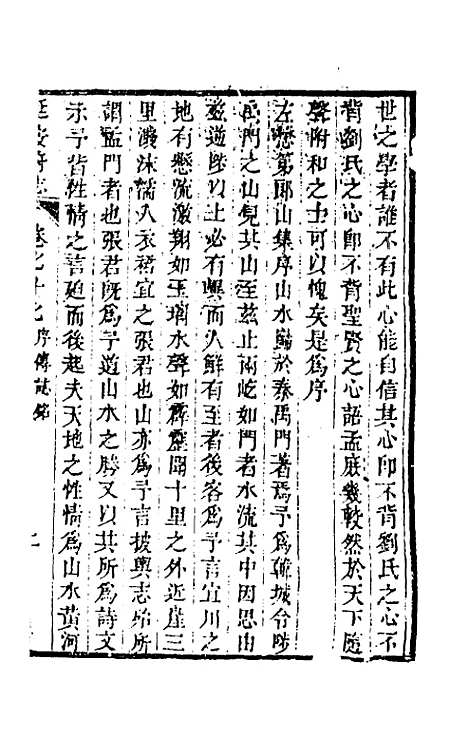 世之學者誰不有此心能自信其心卽不背劉氏之心不
背劉氏之心卽不背聖賢之心語孟庶幾較然於天下隨
聲附和之士可以愧矣是為序
左懋第郿山集序山水歸於秦禹門著焉予為韓城令陟
禹門之山見其山至茲止兩屹如門者水流其中因思由
茲遊陟以上必有興而人鮮有至者後客為予言宜川之
地有懸流激翔如玉璃水聲如霹靂聞十里之外近崖三
里濺沫濡人衣裙宜之張君也山亦為予言披輿志殆所
謂孟門者也張君既為予道山水之勝又以其所為詩文
示予皆性情之言廹而後起夫天地之性情為山水黄河
延安府志
卷七十七 序傳誌銘